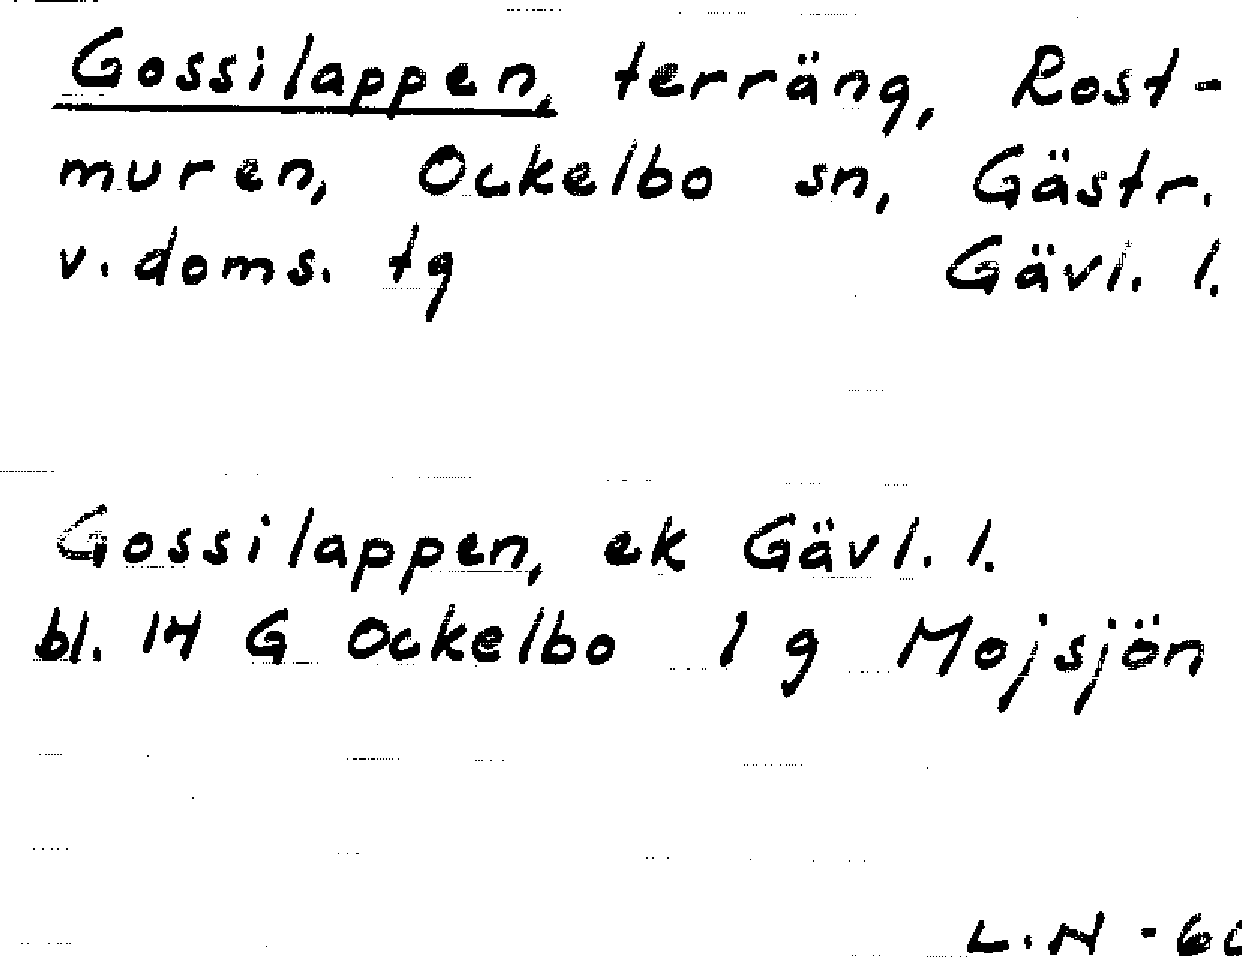 Gossilappen, terräng, Rost-
muren, Ockelbo sn, Gästr.
v. doms. tg Gävl. l.
Gossilappen, ek Gävl. l.
bl. 14 G Ockelbo 1 g Mojsjön
L.N -60